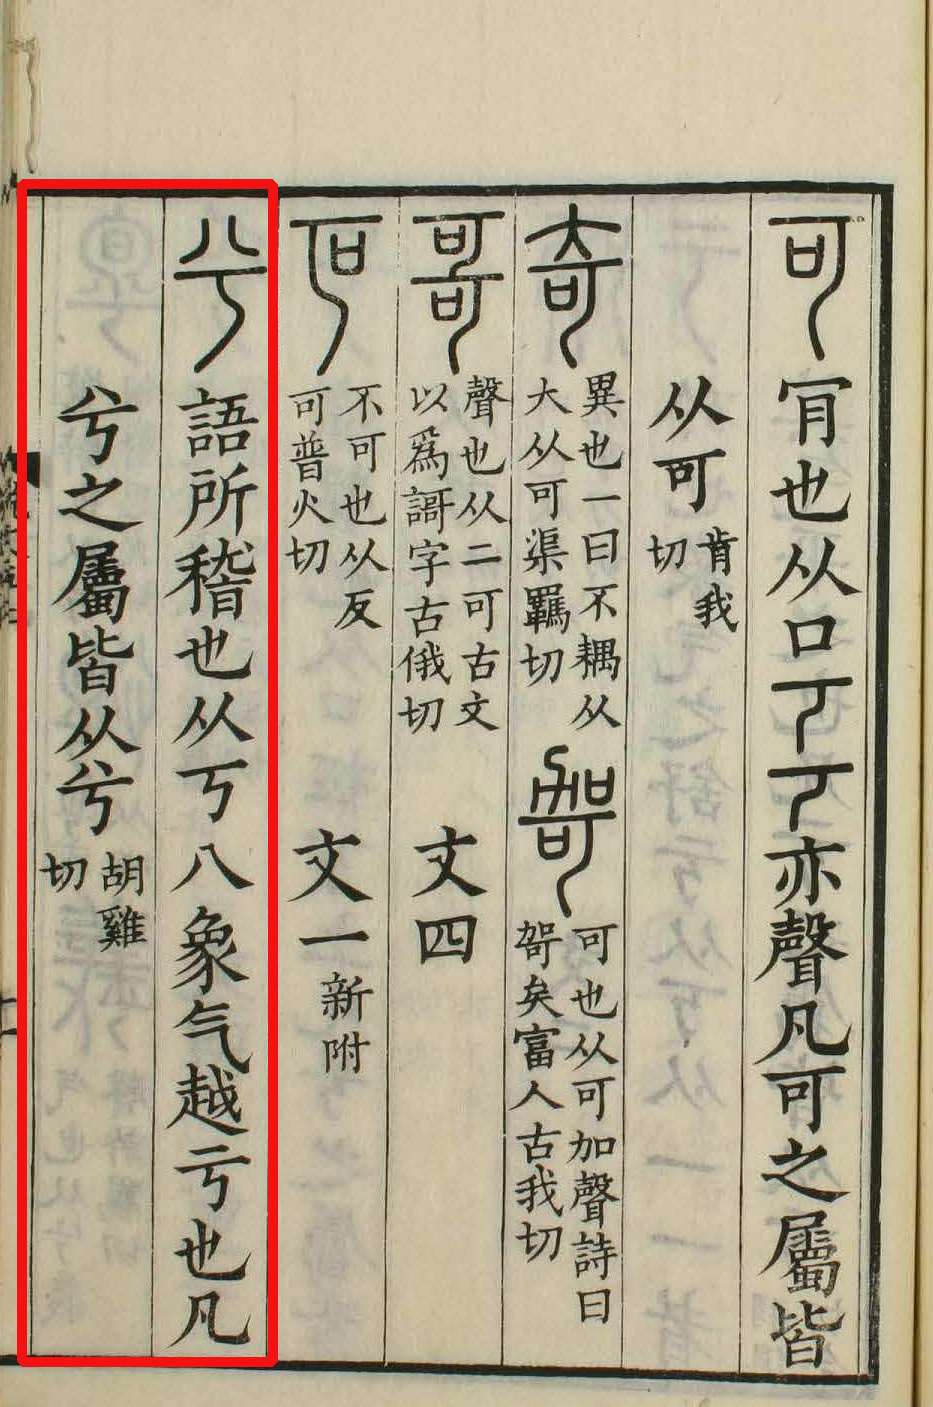 可 肎也从口丂丂亦聲凡可之屬皆
从可 肯我切
奇 異也一曰不耦从大从可渠羈切 哿 可也从可加聲詩曰哿矣富人古我切
哥 聲也从二可古文以爲謌字古俄切 文四
叵 不可也从反可普火切 文一 新附
兮 語所稽也从丂八象气越亏也凡
兮之屬皆从兮 胡雞切